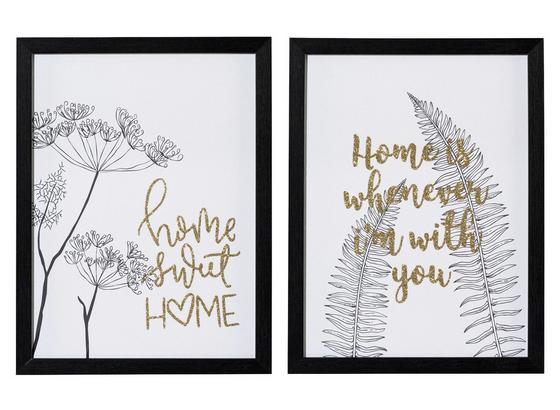 home
sweet
H♡ME
Home is
whenever
i'm with
you